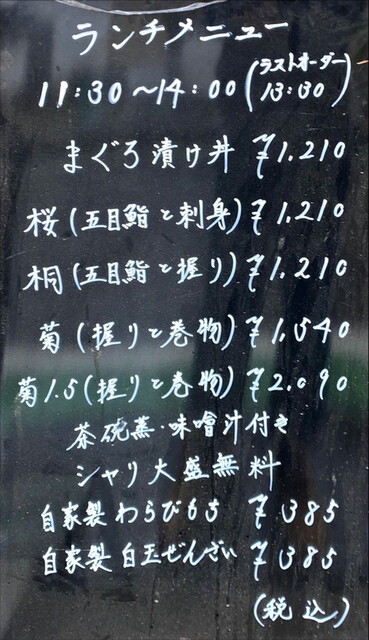 ランチメニュー
11:30〜14:00(ラストオーダー 13:30)
まぐろ漬け丼 ¥1,210
桜(五目鮨と刺身)¥1,210
桐(五目鮨と握り)¥1,210
菊(握りと巻物)¥1,540
菊1.5(握りと巻物)¥2,090
茶碗蒸・味噌汁付き
シャリ大盛無料
自家製わらびもち ¥385
自家製白玉ぜんざい ¥385
(税込)